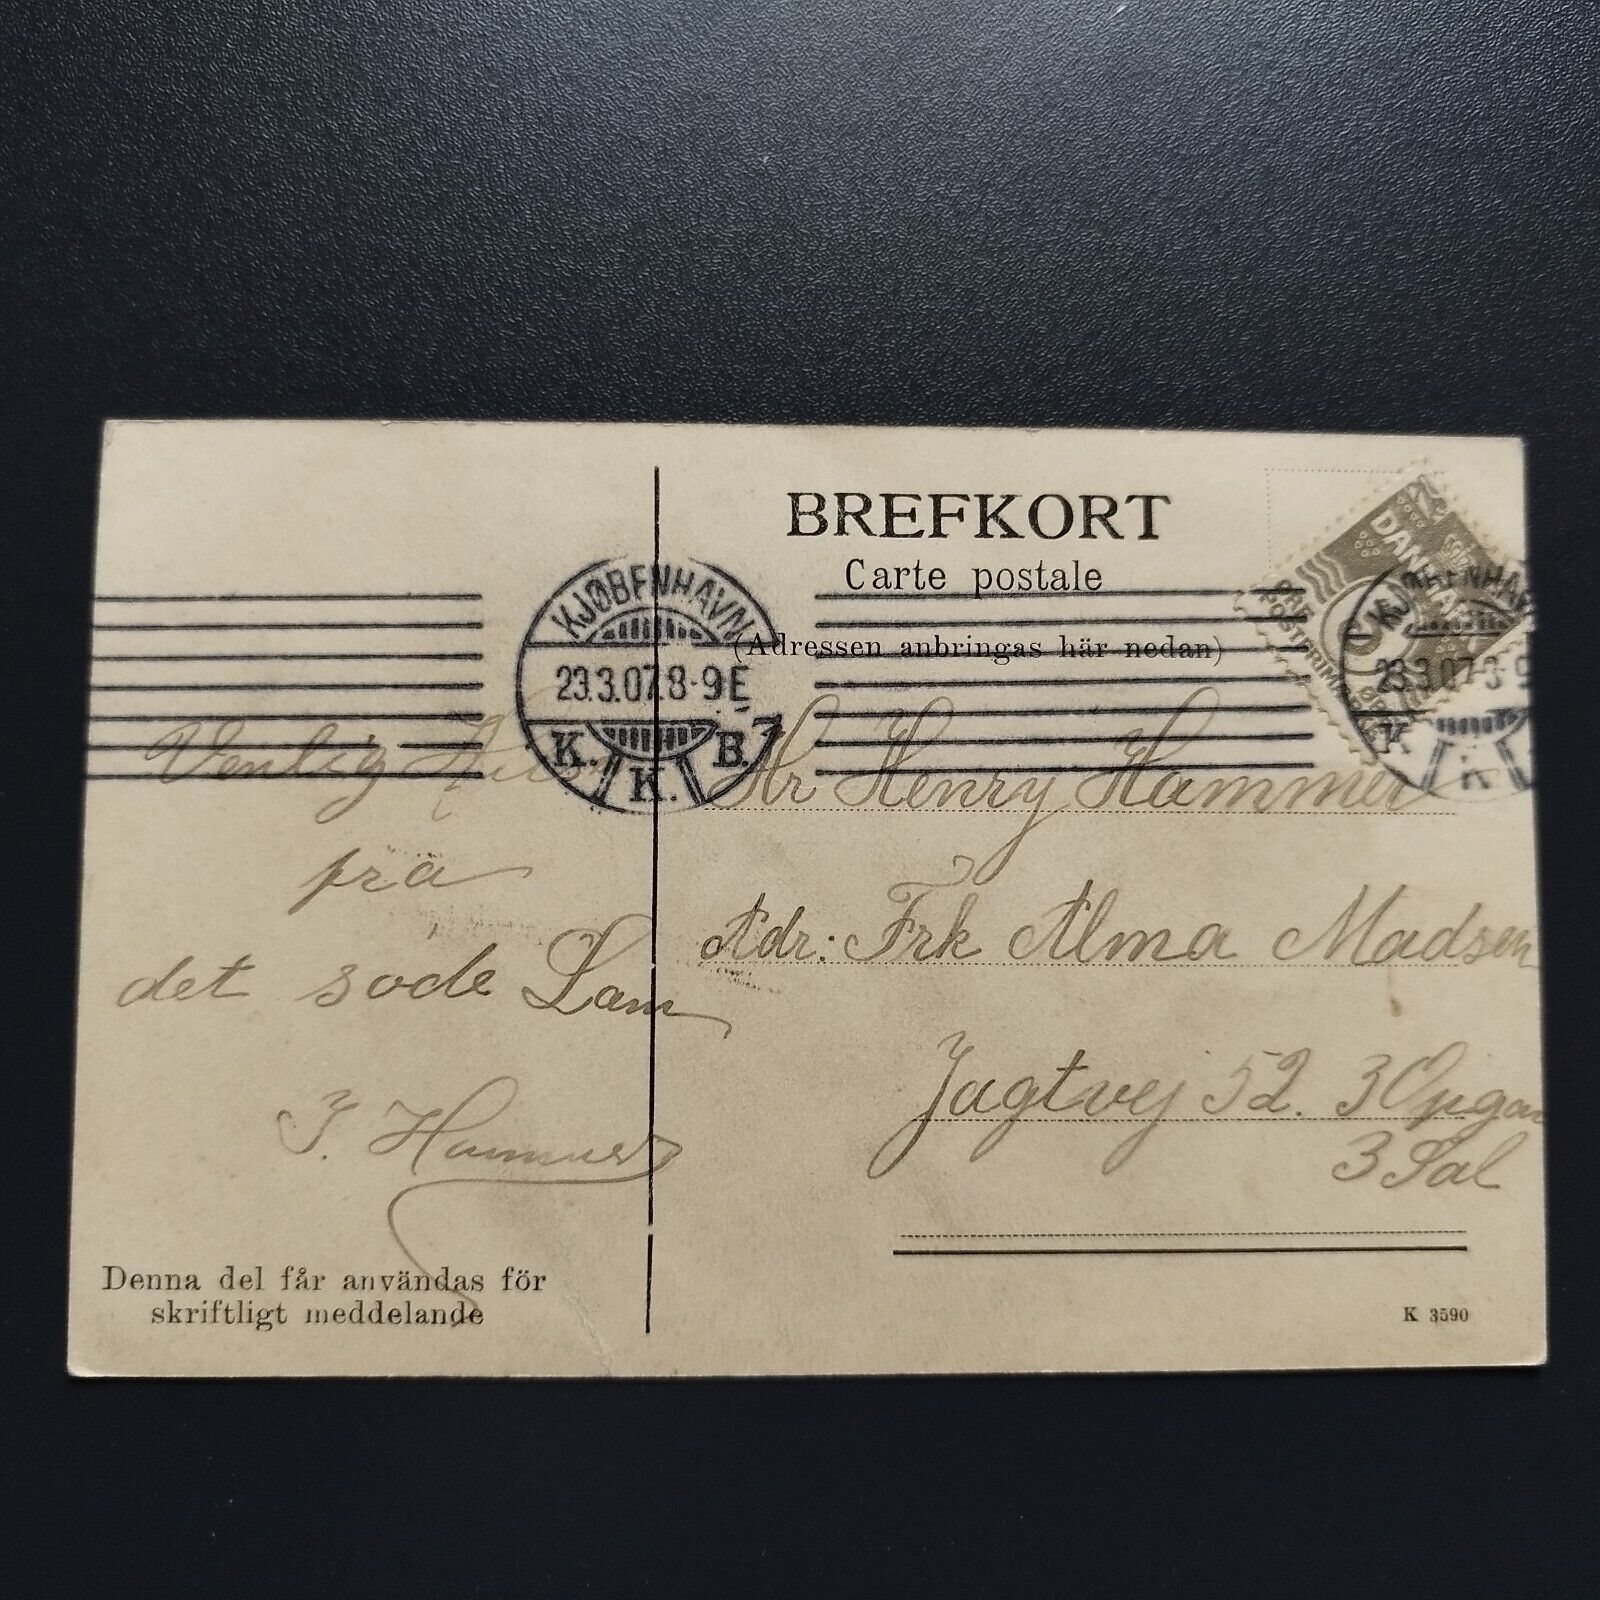 BREFKORT
Carte postale
(Adressen anbringas här nedan)
DANMARK
KJØBENHAVN
23.3.07. 8-9 E
K. K. B. 7
KJØBENHAVN
23.3.07. 8-9
K K
Venlig Hilsen
fra
det søde Lam
J. Hammer
Hr Henry Hammer
Adr: Frk Alma Madsen
Jagtvej 52. 3 Opgan
3 Sal
Denna del får användas för
skriftligt meddelande
K 3590